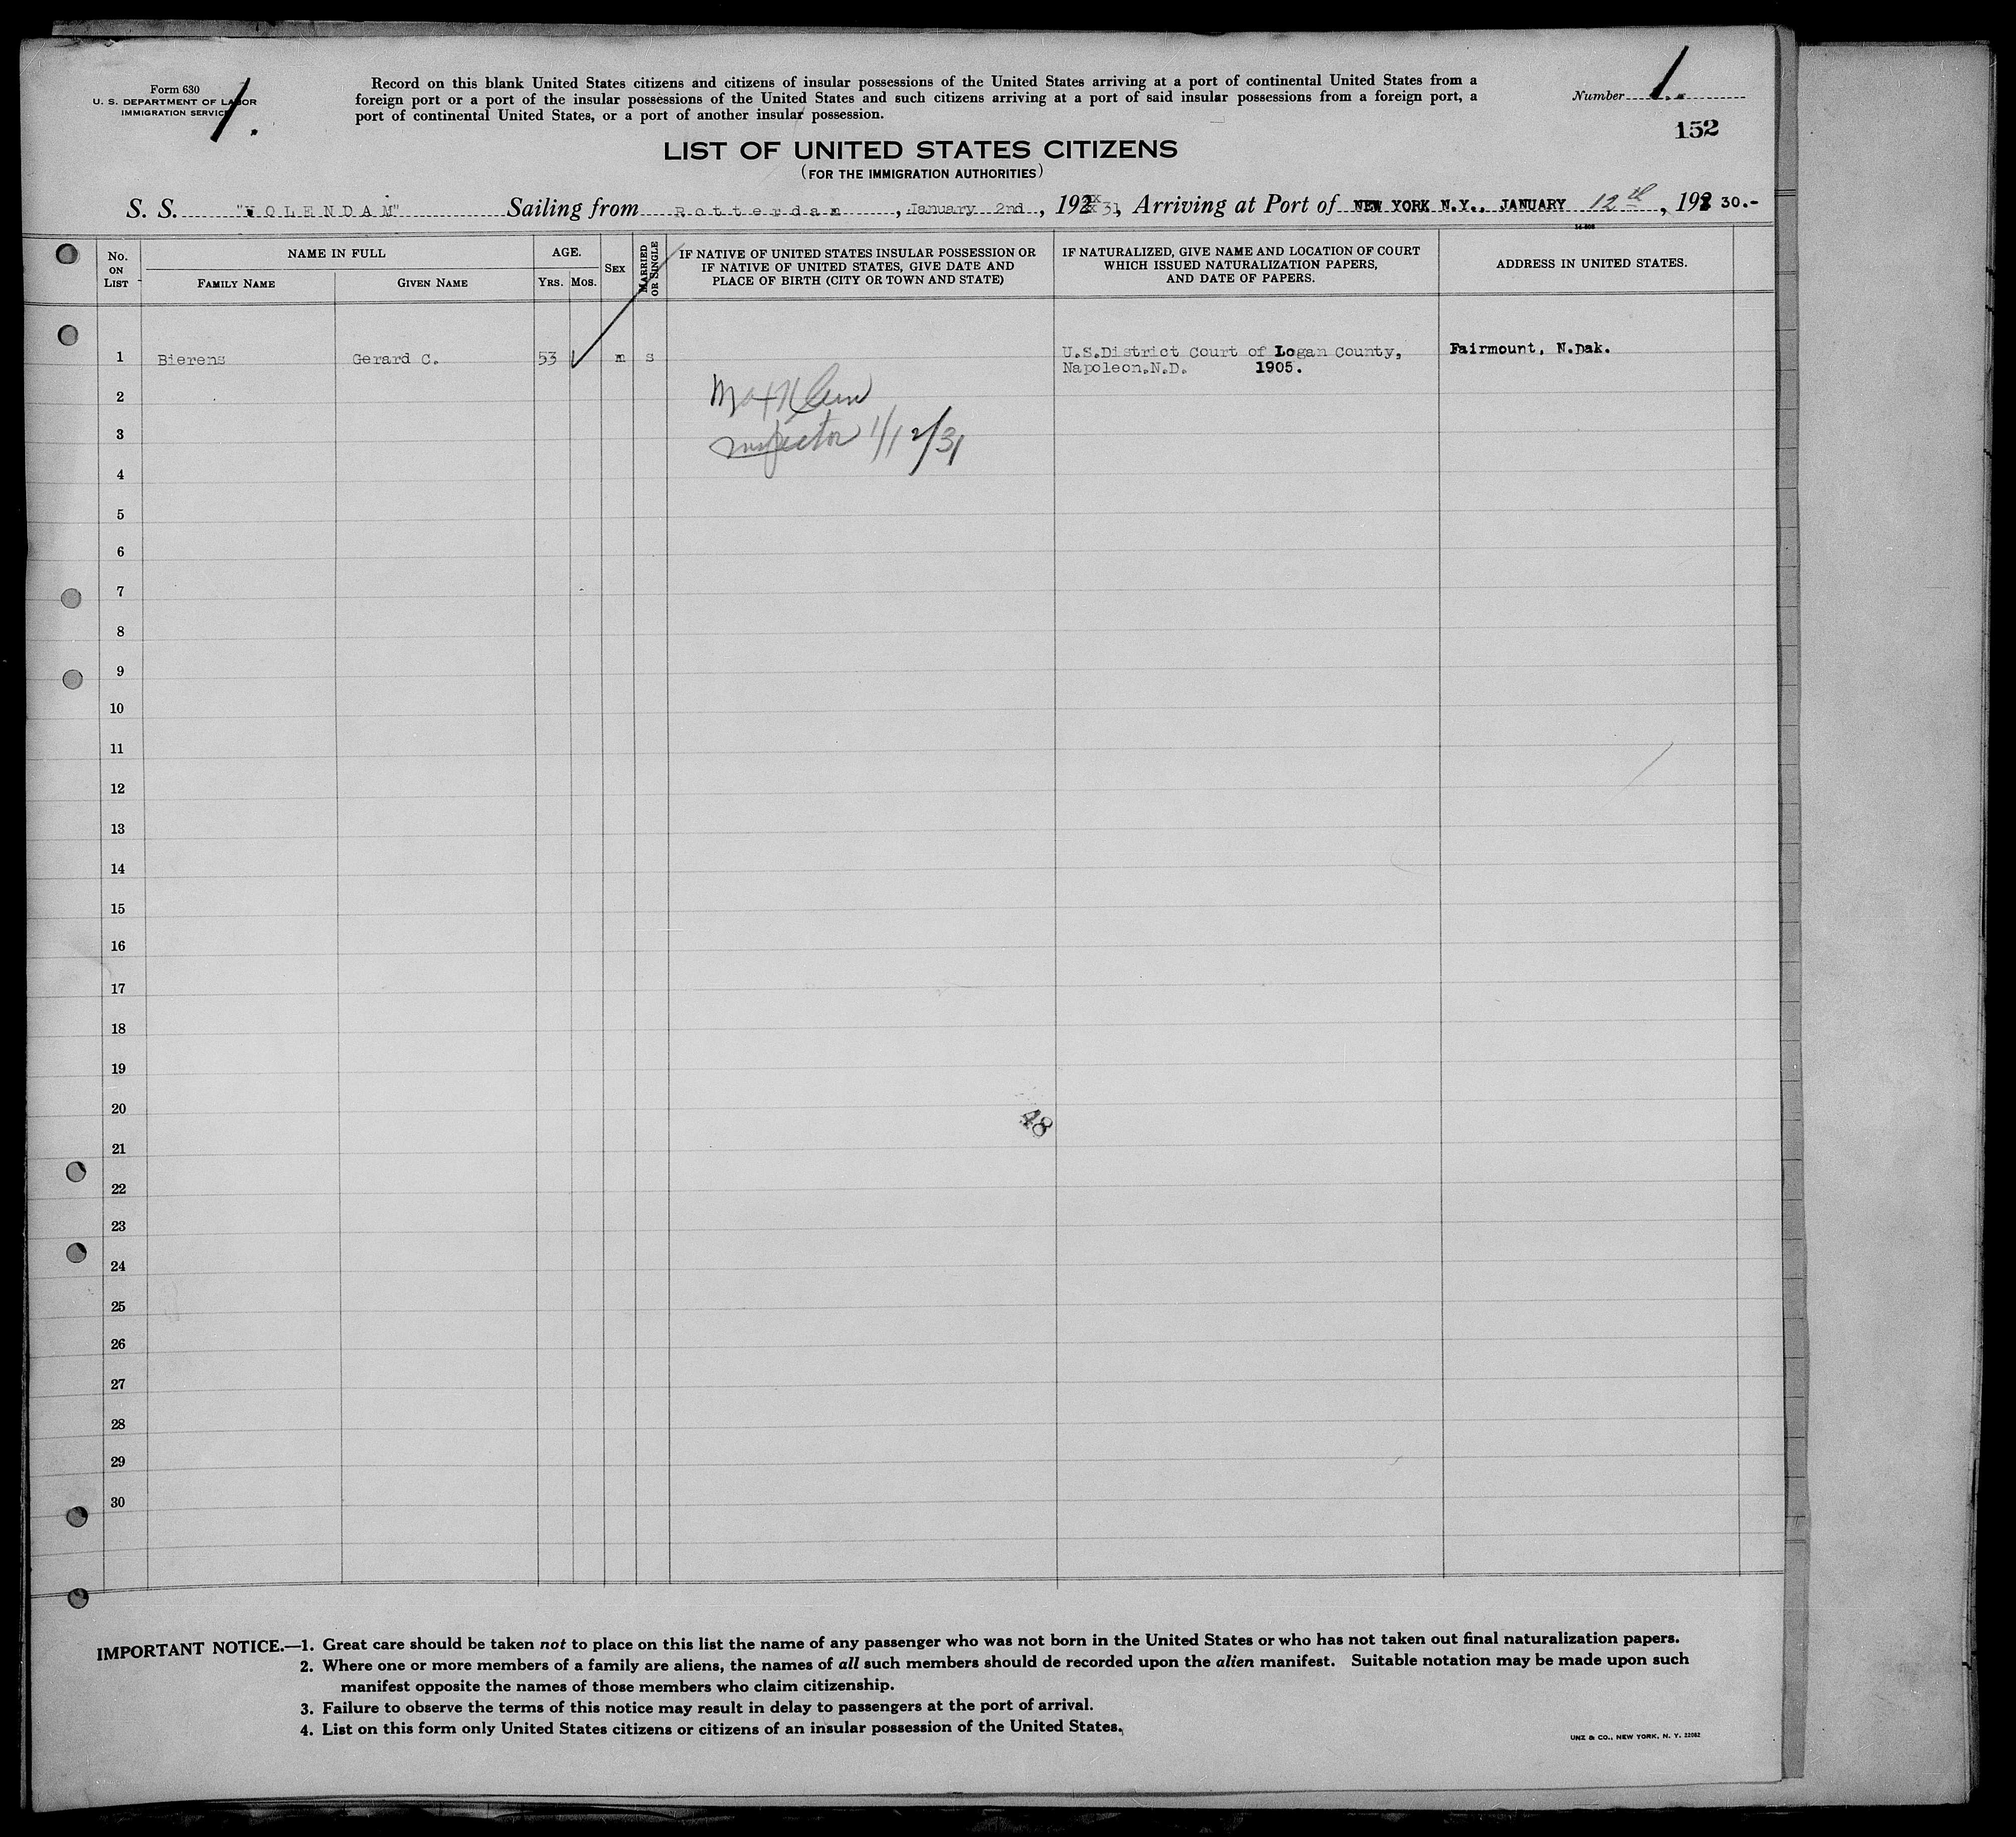 Form 630
U. S. DEPARTMENT OF LABOR
IMMIGRATION SERVICE
1.
Record on this blank United States citizens and citizens of insular possessions of the United States arriving at a port of continental United States from a
foreign port or a port of the insular possessions of the United States and such citizens arriving at a port of said insular possessions from a foreign port, a
port of continental United States, or a port of another insular possession.
Number 1.
152
LIST OF UNITED STATES CITIZENS
(FOR THE IMMIGRATION AUTHORITIES)
S. S. "VOLENDAM" Sailing from Rotterdam, January 2nd, 192 31, Arriving at Port of NEW YORK N.Y., JANUARY 12th, 192 30.-
14-805
No. ON LIST
NAME IN FULL
FAMILY NAME
GIVEN NAME
AGE.
YRS.
MOS.
SEX
MARRIED OR SINGLE
IF NATIVE OF UNITED STATES INSULAR POSSESSION OR
IF NATIVE OF UNITED STATES, GIVE DATE AND
PLACE OF BIRTH (CITY OR TOWN AND STATE)
IF NATURALIZED, GIVE NAME AND LOCATION OF COURT
WHICH ISSUED NATURALIZATION PAPERS,
AND DATE OF PAPERS.
ADDRESS IN UNITED STATES.
1 Bierens Gerard C. 53 m s U.S.District Court of Logan County, Fairmount, N.Dak.
Napoleon.N.D. 1905.
2
Inspector 1/12/31
3
4
5
6
7
8
9
10
11
12
13
14
15
16
17
18
19
20
48
21
22
23
24
25
26
27
28
29
30
IMPORTANT NOTICE.—1. Great care should be taken not to place on this list the name of any passenger who was not born in the United States or who has not taken out final naturalization papers.
2. Where one or more members of a family are aliens, the names of all such members should de recorded upon the alien manifest. Suitable notation may be made upon such
manifest opposite the names of those members who claim citizenship.
3. Failure to observe the terms of this notice may result in delay to passengers at the port of arrival.
4. List on this form only United States citizens or citizens of an insular possession of the United States.
UNZ & CO., NEW YORK, N. Y. 22062